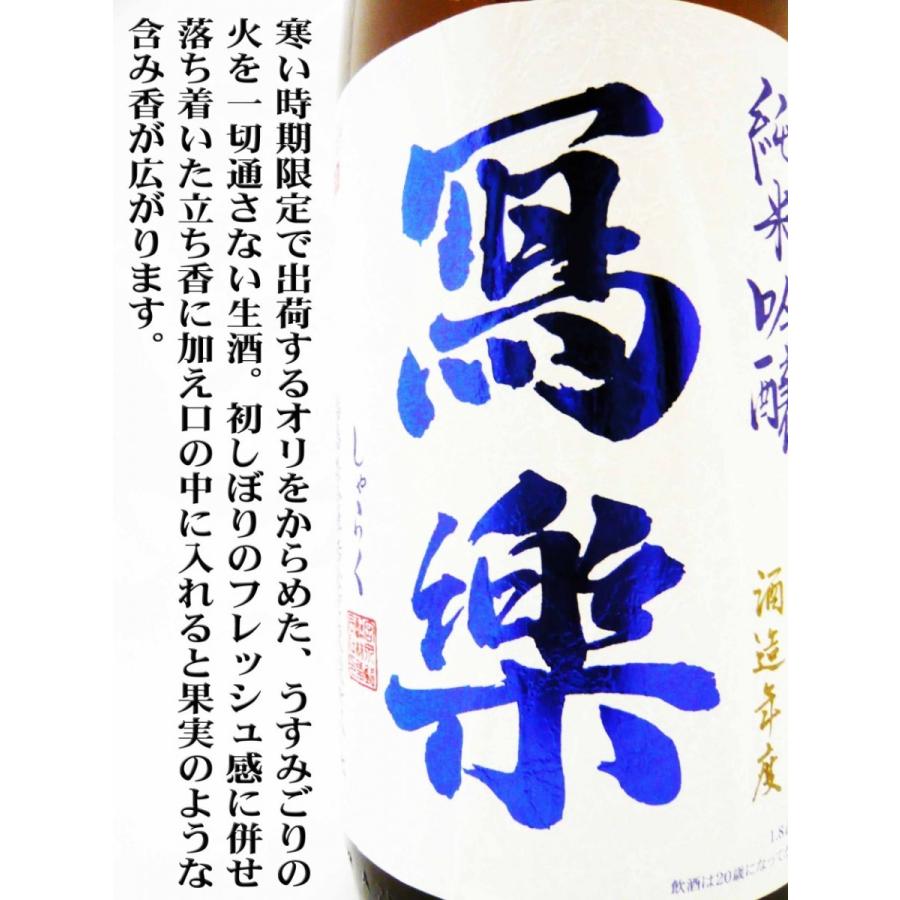 寒い時期限定で出荷するオリをからめた、うすみごりの
火を一切通さない生酒。初しぼりのフレッシュ感に併せ
落ち着いた立ち香に加え口の中に入れると果実のような
含み香が広がります。
純米吟醸
寫樂
しゃらく
酒造年度
1.8
飲酒は20歳になってか